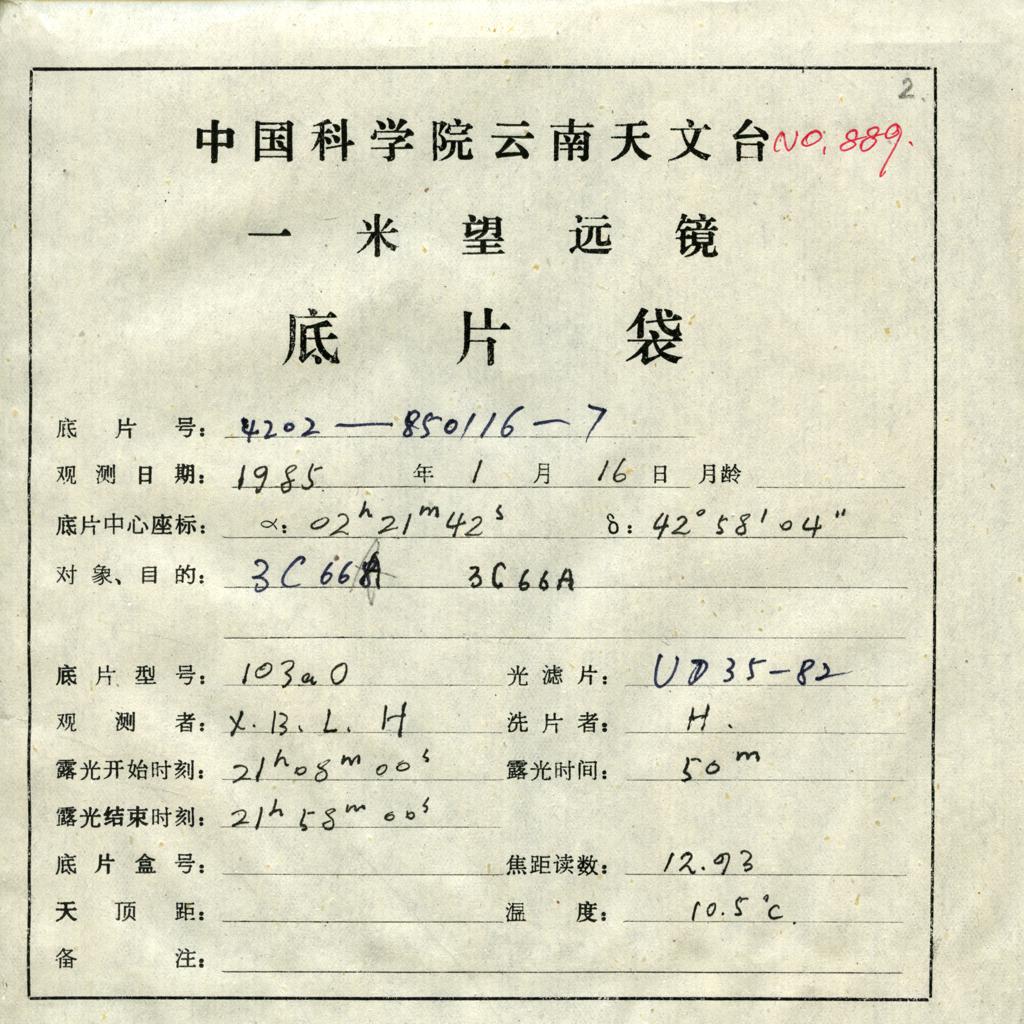 2.
中国科学院云南天文台 NO. 889.
一米望远镜
底片袋
底片号: 4202—850116—7
观测日期: 1985 年 1 月 16 日 月龄
底片中心座标: α: 02h 21m 42s δ: 42° 58' 04"
对象、目的: 3C 66A 3C66A
底片型号: 103aO 光滤片: UD 35-82
观测者: X. B. L. H 洗片者: H.
露光开始时刻: 21h 08m 00s 露光时间: 50m
露光结束时刻: 21h 58m 00s
底片盒号: 焦距读数: 12.93
天顶距: 温度: 10.5°C
备注: